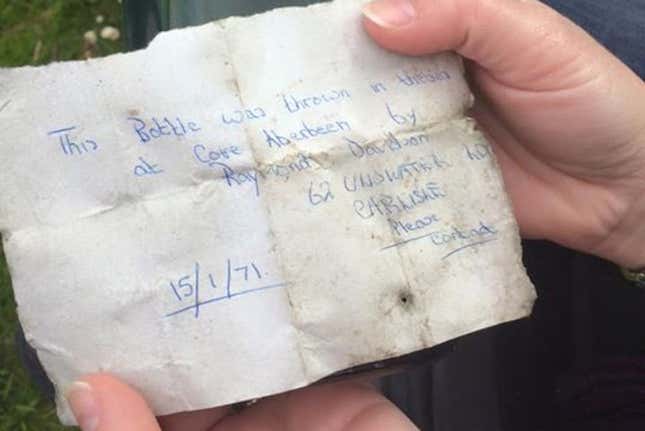 This Bottle was thrown in
at Cove Aberdeen by
Raymond Davidson
62
CARLISLE
Please
Contact
15/1/71.